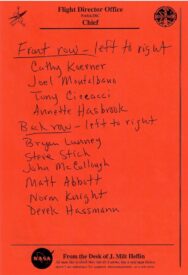 Flight Director Office
NASA/JSC
Chief
Front row - left to right
Cathy Koerner
Joel Montalbano
Tony Ceccacci
Annette Hasbrook
Back row - left to right
Bryan Lunney
Steve Stich
John McCullough
Matt Abbott
Norm Knight
Derek Hassmann
NASA
From the Desk of J. Milt Heflin